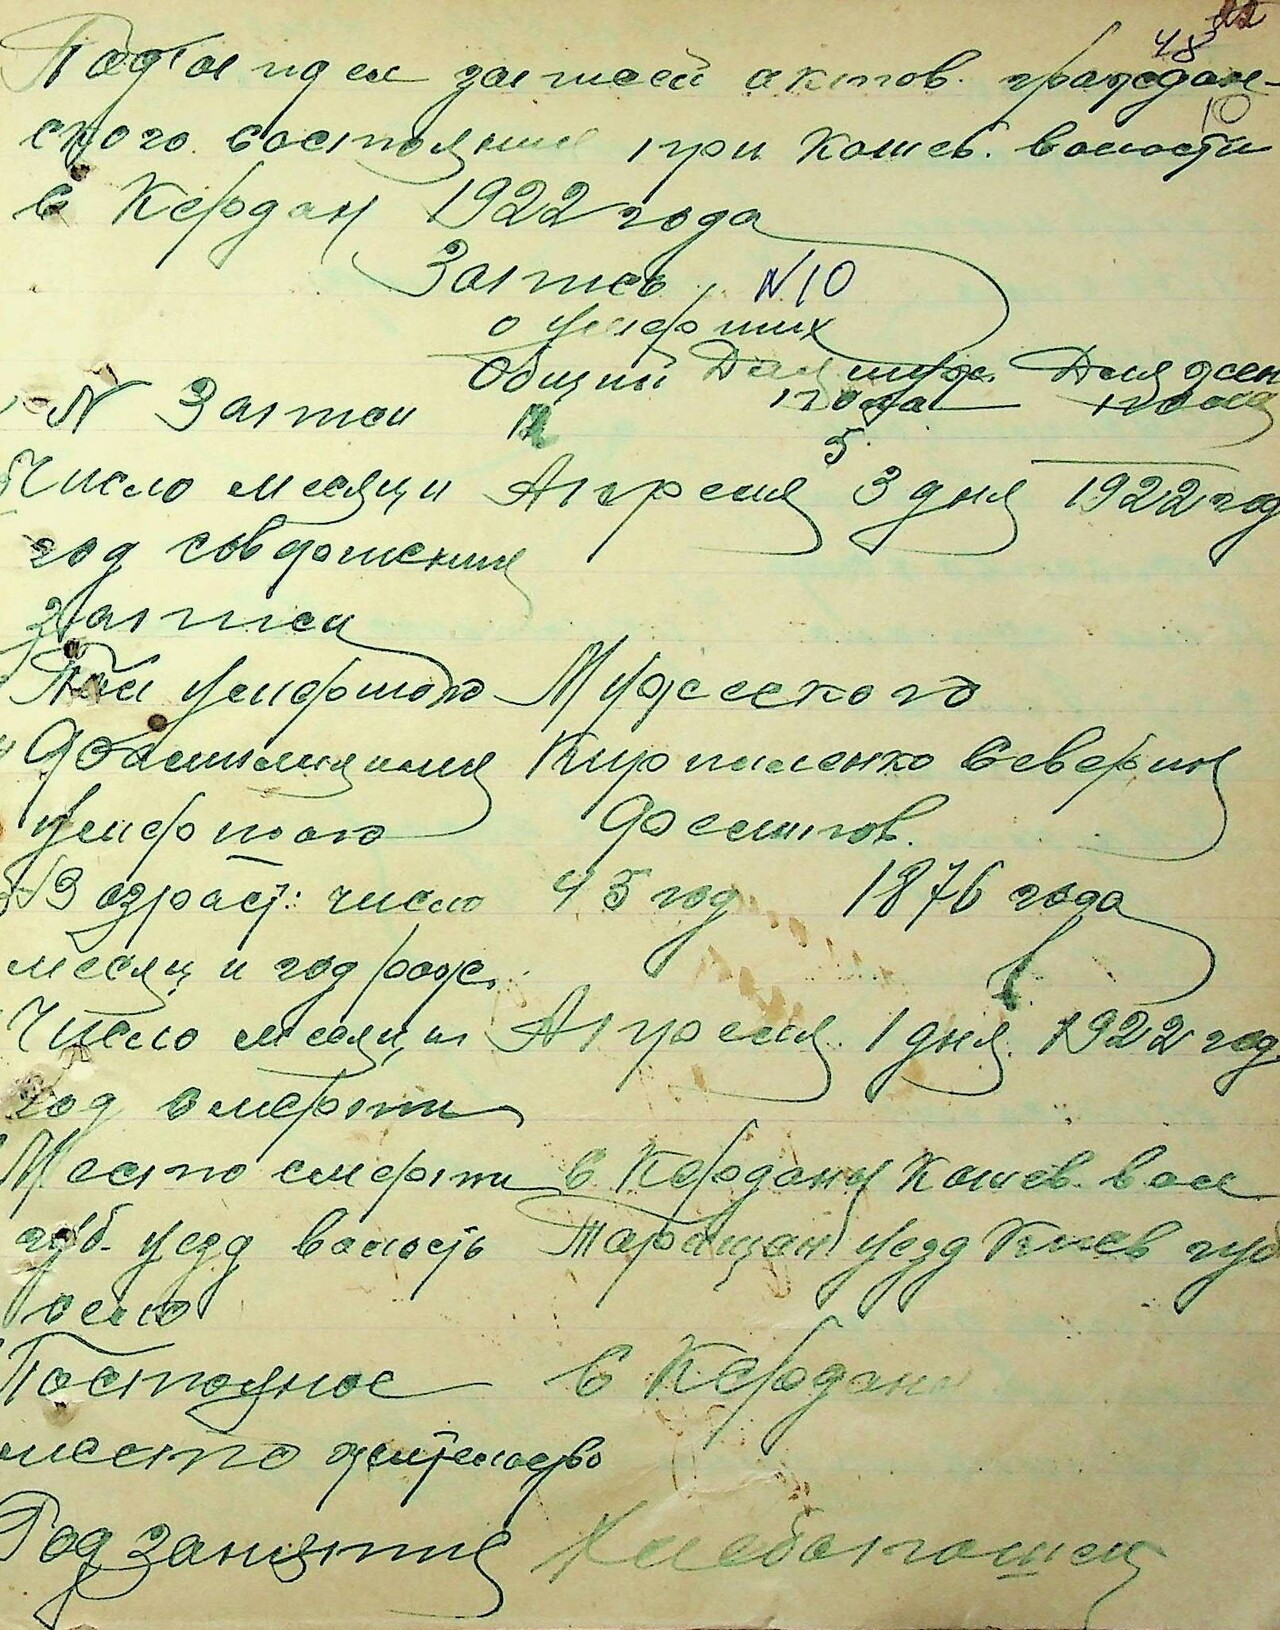 22
48
Подотдел записей актов. граждан-
10
ского состояния при Кошев. волости
в Кердан 1922 года
Запись N10
о умерших
Общий Для муж. Для жен
N Записи 12 пола пола
5
Число месяц и Апреля 3 дня 1922 год
год совершения
записи
Пол умершого Мужеского
Фамилия имя Кирпиленко Северин
умершого Феситов.
Возраст: число 45 год 1876 года
месяц и год рож.
Число месяц и Апреля 1 дня 1922 год
год смерти
Место смерти в Керданы Кошев. вол
губ. уезд волость Таращан уезд Киев губ
село
Постоянное в Керданы
место жительство
Род занятия Хлебопашец